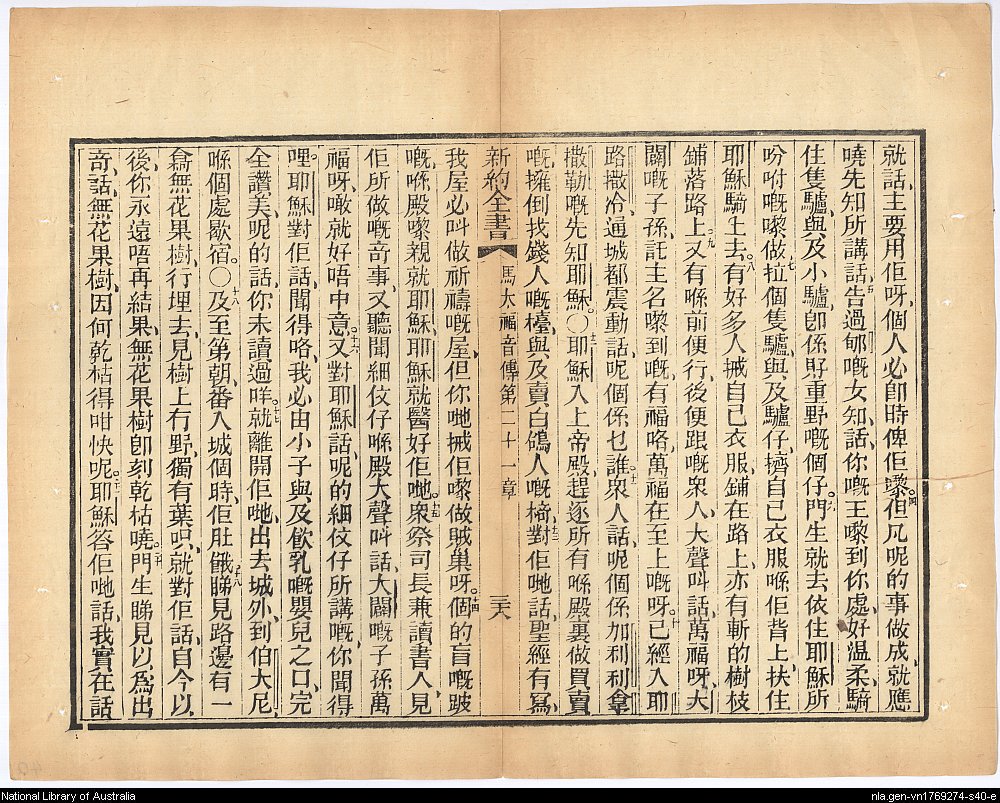 就話主要用佢呀個人必卽時俾佢嚟四但凡呢的事做成就應
曉先知所講話五告過郇嘅女知話你嘅王嚟到你處好溫柔騎
住隻驢與及小驢卽係馱重野嘅個仔六門生就去依住耶穌所
吩咐嘅嚟做七拉個隻驢與及驢仔擠自己衣服喺佢背上扶住
耶穌騎上去八有好多人搣自己衣服鋪在路上亦有斬的樹枝
鋪落路上九又有喺前便行後便跟嘅衆人大聲呌話萬福呀大
闢嘅子孫託主名嚟到嘅有福咯萬福在至上嘅呀十已經入耶
路撒冷通城都震動話呢個係乜誰十一衆人話呢個係加利利拿
撒勒嘅先知耶穌〇十二耶穌入上帝殿趕逐所有喺殿裏做買賣
嘅擁倒找錢人嘅檯與及賣白鴿人嘅椅十三對佢哋話聖經有寫
新約全書 馬太福音傳第二十一章 三六
我屋必呌做祈禱嘅屋但你哋搣佢嚟做賊巢呀十四個的盲嘅跛
嘅喺殿嚟親就耶穌耶穌就醫好佢哋十五衆祭司長兼讀書人見
佢所做嘅奇事又聽聞細仔喺殿大聲呌話大闢嘅子孫萬
福呀噉就好唔中意十六又對耶穌話呢的細仔所講嘅你聞得
哩耶穌對佢話聞得咯我必由小子與及飲乳嘅嬰兒之口完
全讚美呢的話你未讀過咩十七就離開佢哋出去城外到伯大尼
喺個處歇宿〇十八及至第朝番入城個時佢肚餓十九睇見路邊有一
翕無花果樹行埋去見樹上冇野獨有葉呮就對佢話自今以
後你永遠唔再結果無花果樹卽刻乾枯曉二十門生睇見以爲出
奇話無花果樹因何乾枯得咁快呢二十一耶穌答佢哋話我實在話
National Library of Australia
nla.gen-vn1769274-s40-e